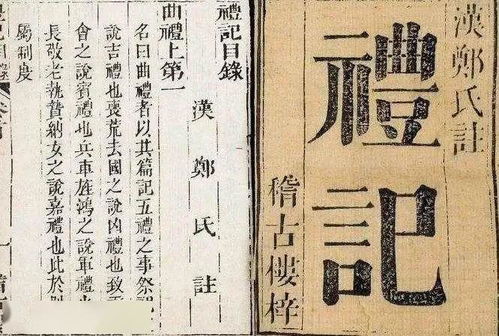 漢鄭氏註
禮記
稽古樓梓
禮記目錄
漢鄭氏註
曲禮上第一
名曰曲禮者以其篇記五禮之事祭祀
說吉禮也喪荒去國之說凶禮也致
會之說賓禮也兵車旌鴻之說軍禮也
長敬老執贄納女之說嘉禮也此於別
屬制度